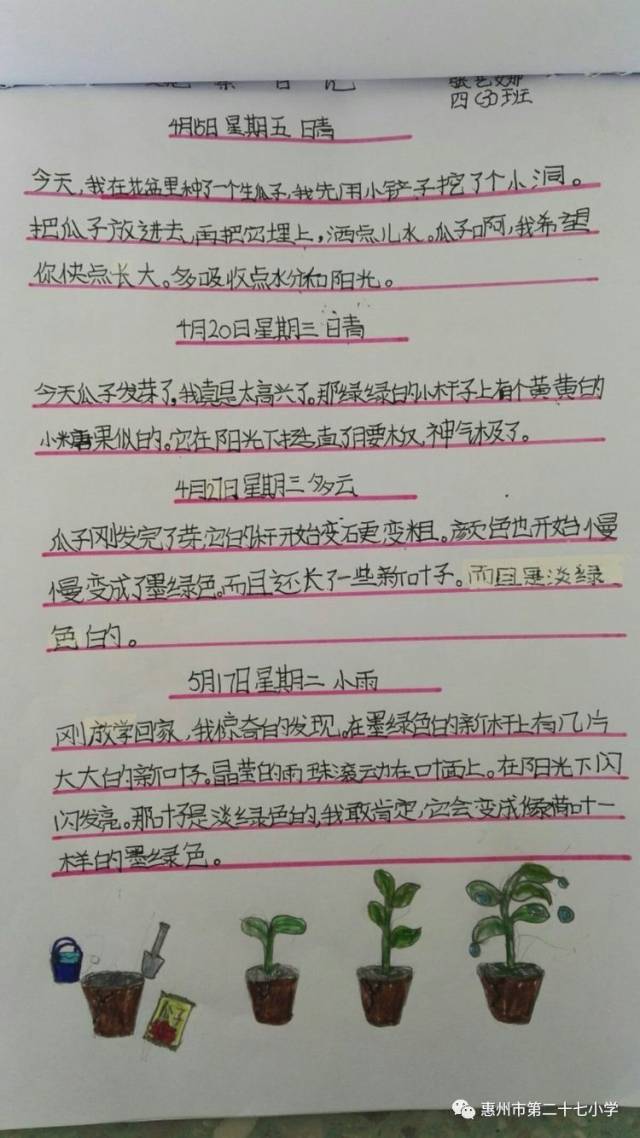 观察日记
张艺娜
四(3)班
4月15日 星期五 晴
今天,我在花盆里种了一个生瓜子,我先用小铲子挖了个小洞。
把瓜子放进去,再把它埋上,洒点儿水。瓜子啊,我希望
你快点长大。多吸收点水分和阳光。
4月20日星期三 晴
今天瓜子发芽了,我真是太高兴了。那绿绿的小杆子上有个黄黄的
小糖果似的。它在阳光下挺直了腰板,神气极了。
4月27日 星期三 多云
瓜子刚发完了芽,它的杆开始变硬变粗。颜色也开始慢
慢变成了墨绿色。而且还长了一些新叶子。而且是淡绿
色的。
5月17日星期二 小雨
刚放学回家,我惊奇的发现。在墨绿色的新杆上有几片
大大的新叶子。晶莹的雨珠滚动在叶面上。在阳光下闪
闪发亮。那叶子是淡绿色的,我敢肯定,它会变成像荷叶一
样的墨绿色。
瓜子
惠州市第二十七小学